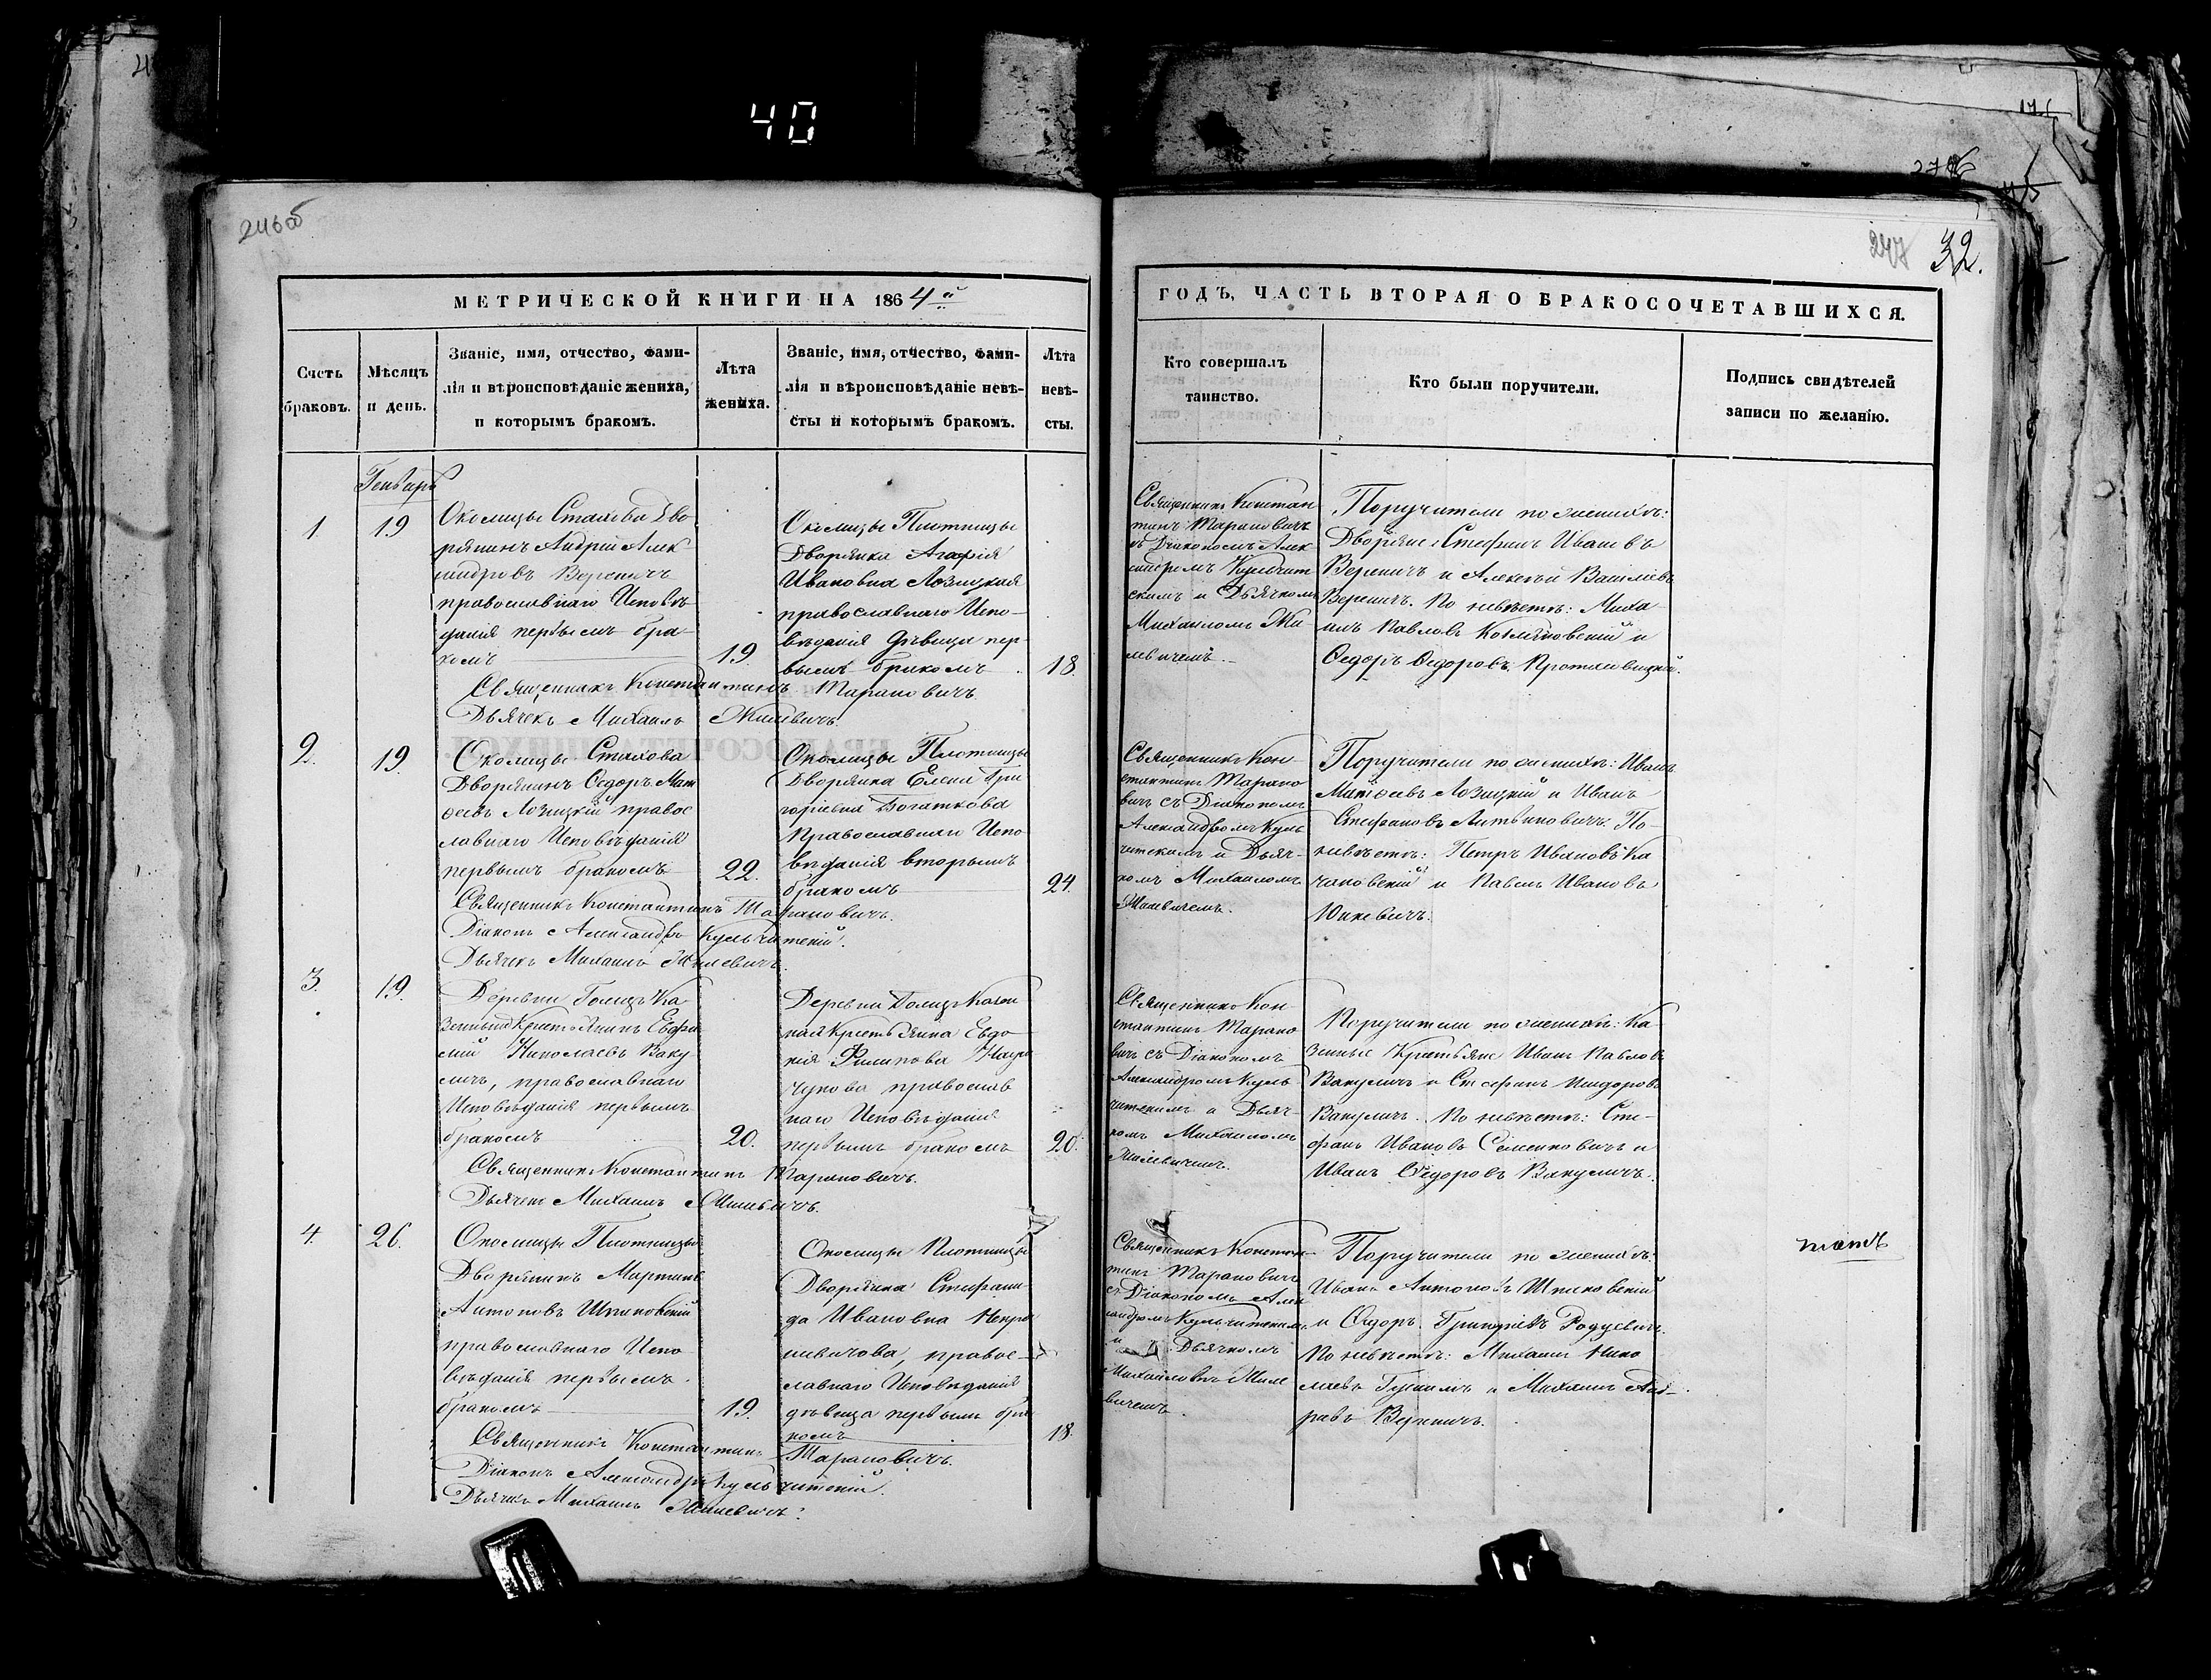 40
246об
МЕТРИЧЕСКОЙ КНИГИ НА 1864й
Счетъ браковъ.
Мѣсяцъ и день.
Званіе, имя, отчество, фами-
лія и вѣроисповѣданіе жениха,
и которымъ бракомъ.
Лѣта
жениха.
Званіе, имя, отчество, фами-
лія и вѣроисповѣданіе невѣ-
сты и которымъ бракомъ.
Лѣта
невѣ-
сты.
Генварь
1.
19
Околицы Стахова Дво
рянинъ Андрей Алек
сандровъ Вереничъ
православнаго Исповѣ
данія первымъ бра-
комъ
19.
Околицы Плотницы
Дворянка Агафія
Ивановна Лозицкая
православнаго Испо-
вѣданія дѣвица пер-
вымъ бракомъ
18.
Священникъ Константинъ Тарановичъ
Дьячекъ Михаилъ Жилевичъ.
2.
19.
Околицы Стахова
Дворянинъ Ѳедоръ Мат
ѳеевъ Лозицкій правос
лавнаго Исповѣданія
первымъ бракомъ
22.
Околицы Плотницы
Дворянка Елена Гри
горіевна Богаткова
Православнаго Испо
вѣданія вторымъ
бракомъ
24.
Священникъ Константинъ Тарановичъ.
Діаконъ Александръ Кульчитскій.
Дьячекъ Михаилъ Жилевичъ.
3.
19.
Деревни Голицъ Ка
зенный Крестьянинъ Евфи
мій Николаевъ Ваку
личъ, православнаго
Исповѣданія первымъ
бракомъ
20.
Деревни Голицъ Казен
ная Крестьянка Евдо
кія Филипова
православ
наго Исповѣданія
первымъ бракомъ
20.
Священникъ Константинъ Тарановичъ.
Дьячекъ Михаилъ Жилевичъ.
4.
26.
Околицы Плотницы
Дворянинъ Мартинъ
Антоновъ Шпиковскій
православнаго Испо
вѣданія первымъ
бракомъ
19.
Околицы Плотницы
Дворянка Стефани
да Ивановна
православнаго Исповѣданія
дѣвица первымъ бра
комъ
18.
Священникъ Константинъ Тарановичъ.
Діаконъ Александръ Кульчитскій.
Дьячекъ Михаилъ Жилевичъ.
247 32.
ГОДЪ, ЧАСТЬ ВТОРАЯ О БРАКОСОЧЕТАВШИХСЯ.
Кто совершалъ
таинство.
Кто были поручители.
Подпись свидѣтелей
записи по желанію.
Священникъ Констан
тинъ Тарановичъ
съ Діакономъ Алек
сандромъ Кульчит
скимъ и Дьячкомъ
Михаиломъ Жи
левичемъ.
Поручители по женихѣ:
Дворяне: Стефанъ Ивановъ
Вереничъ и Алексѣй Васильевъ
Вереничъ. По невѣстѣ: Миха-
илъ Павловъ Козляковскій и
Ѳедоръ Ѳедоровъ Протасевицкій.
Священникъ Кон
стантинъ Тарано
вичъ съ Діакономъ
Александромъ Куль
читскимъ и Дьяч-
комъ Михаиломъ
Жилевичемъ.
Поручители по женихѣ: Иванъ
Матѳеевъ Лозицкій и Иванъ
Стефановъ Литвиновичъ. По-
невѣстѣ: Петръ Ивановъ Ка
чановскій и Павелъ Ивановъ
Юкевичъ.
Священникъ Кон
стантинъ Тарано
вичъ съ Діакономъ
Александромъ Куль
читскимъ и Дьяч-
комъ Михаиломъ
Жилевичемъ.
Поручители по женихѣ: Ка
зенные Крестьяне Иванъ Павловъ
Вакуличъ и Стефанъ Исидоровъ
Вакуличъ. По невѣстѣ: Сте-
фанъ Ивановъ Семенковичъ и
Иванъ Ѳедоровъ Вакуличъ.
Священникъ Констан-
тинъ Тарановичъ
съ Діакономъ Алек
сандромъ Кульчитскимъ
и Дьячкомъ
Михаиломъ Жиле
вичемъ.
Поручители по женихѣ:
Иванъ Антоновъ Шпиковскій
и Ѳедоръ Григорьевъ Родзевичъ.
По невѣстѣ: Михаилъ Нико
лаевъ и Михаилъ Анд-
реевъ Вереничъ.